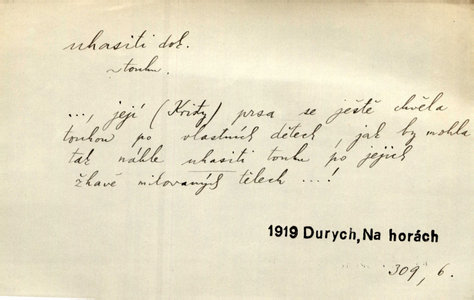 uhasiti dok.
~ touhu.
..., její (Kridy) prsa se ještě chvěla
touhou po vlastních dětech, jak by mohla
tak náhle uhasiti touhu po jejich
žhavě milovaných tělech ...!
1919 Durych, Na horách
309, 6.